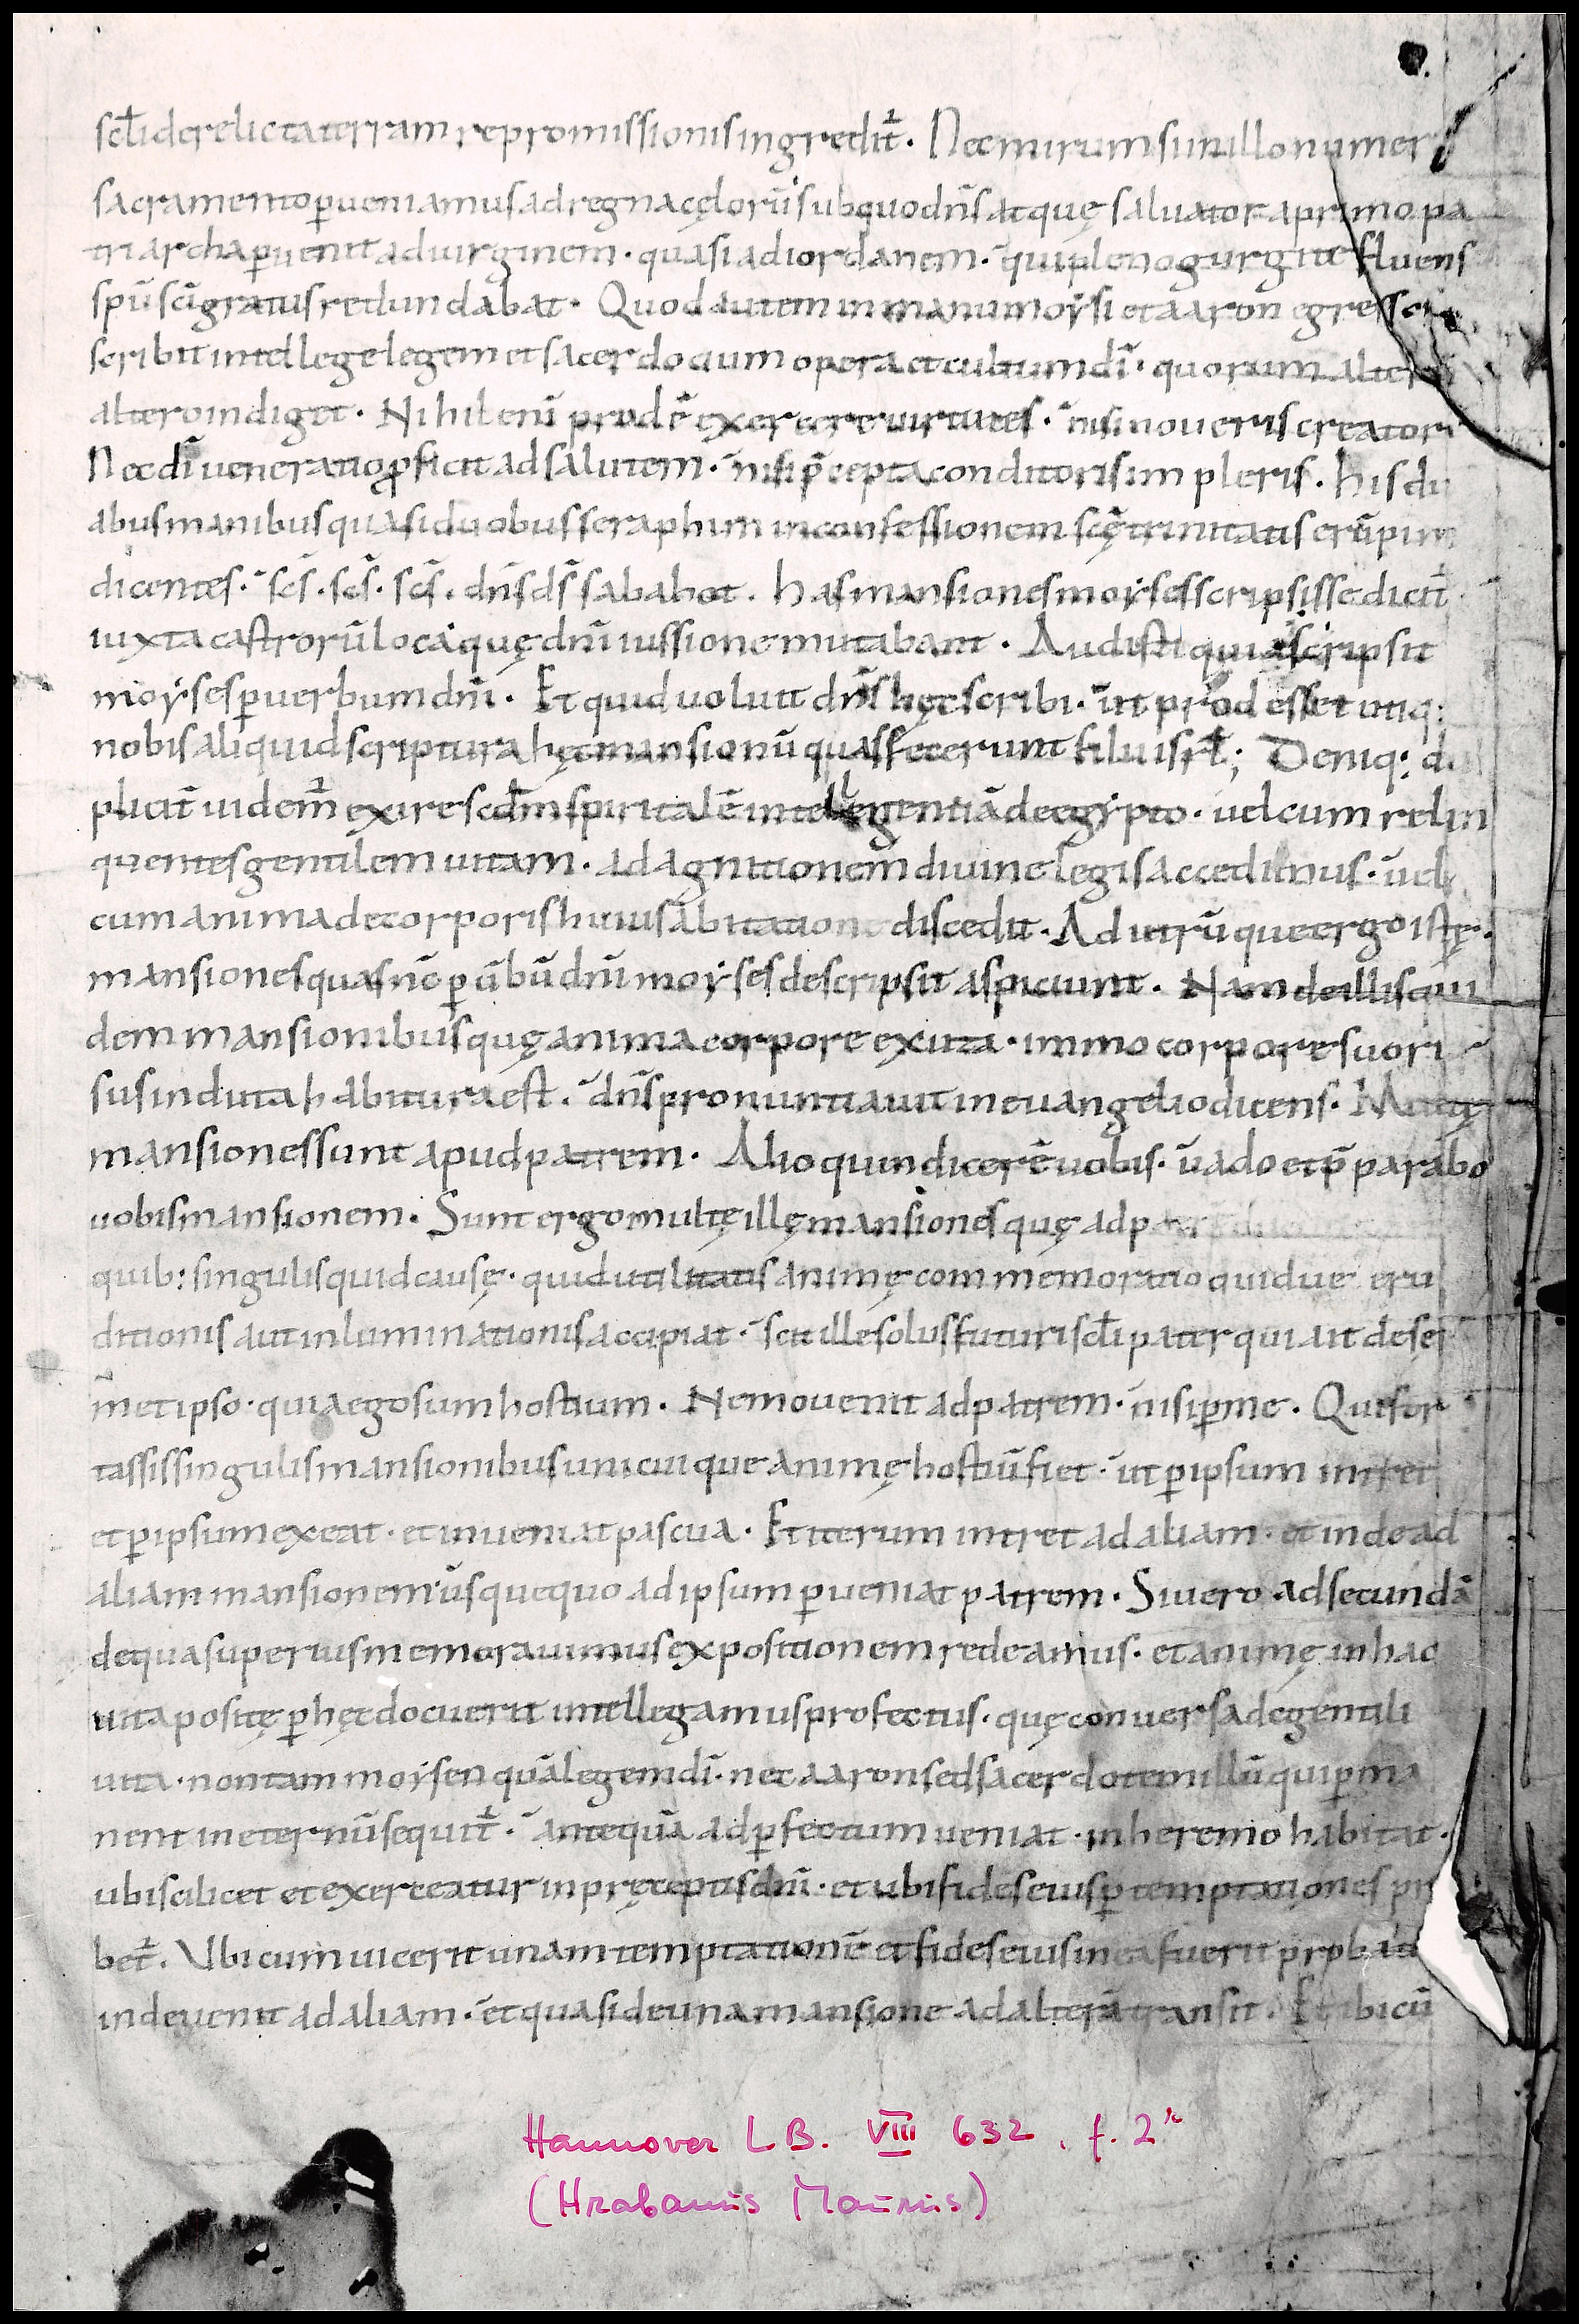 scłi derelicta terram repromissionis ingredit᷑. Nec mirum si in illo numer
sacramento ꝑueniamus ad regna cęlorū sub quo dn̄s atquę saluator a primo pa
triarcha ꝑuenit ad uirginem · quasi ad iordanem · qui pleno gurgite fluens
spū sc̄i gratiis redundabat · Quod autem in manu moẏsi et aaron egressos
scribit intellege legem et sacerdocium opera et cultum dī · quorum alterū
altero indiget · Nihil enī prodē exercere uirtutes · nisi noueris creatorē
Nec dī ueneratio ꝓficit ad salutem · nisi p̄cepta conditoris impleris . his du
abus manibus quasi duobus seraphim in confessionem sc̄ę trinitatis erūpim
dicentes · sc̄s . sc̄s . sc̄s . dn̄s ds̄ sabahot . has mansiones moẏses scripsisse dicit᷑
iuxta castrorū loca quę dn̄i iussione mutabant · Audisti quia scripsit
moẏses ꝑ uerbum dn̄i · Et quid uoluit dn̄s hęc scribi · ut prodesset utiq:
nobis aliquid scriptura hęc mansionū quas fecerunt filii isrł; Deniq: du
plicit᷑ uidem᷑ exire scdm̄ spiritalē intellegentiā de egẏpto · uel cum relin
quentes gentilem uitam · ad agnitionem diuine legis accedimus · uel
cum anima de corporis huius abitatione discedit · Ad utrūque ergo istę
mansiones quas nc̄ ꝑ ūbū dn̄i moẏses descripsit aspiciunt · Nam de illis qui
dem mansionibus quę anima corpore exuta · immo corpore suo ri
sus induta habitura est . dn̄s pronuntiauit in euangelio dicens · Multę
mansiones sunt apud patrem · Alioquin dicerē uobis · uado et p̄parabo
uobis mansionem · Sunt ergo multę illę mansiones quę ad patrē
quib: singulis quid causę · quid utilitatis animę commemoratio quidue eru
ditionis aut inluminationis accipiat · scit ille solus futuri scłi pater qui ait de se
met ipso · quia ego sum hostium · Nemo uenit ad patrem · nisi ꝑ me · Qui for
tassis singulis mansionibus unicuique animę hostiū fiet · ut ꝑ ipsum intret
et ꝑ ipsum exeat · et inueniat pascua · Et iterum intret ad aliam · et inde ad
aliam mansionem usquequo ad ipsum ꝑueniat patrem · Si uero ad secundā
de qua superius memorauimus expositionem redeamus · et animę in hac
uita positę ꝑ hęc docuerit intellegamus profectus · quę conuersa de gentili
uita · non tam moẏsen quā legem dī · nec aaron sed sacerdotem illū qui ꝑma
nent in eternū sequit᷑ · antequā ad ꝑfectum ueniat · in heremo habitat ·
ubi scilicet et exerceatur in pręceptis dn̄i · et ubi fides eius ꝑ temptationes pro
bet᷑ . Vbi cum uicerit unam temptationē et fides eius in ea fuerit probata
inde uenit ad aliam · et quasi de una mansione ad alterā transit . Et ibi cū
Hannover L B. VIII 632 , f. 2ʳ
(Hrabanus Maurus)